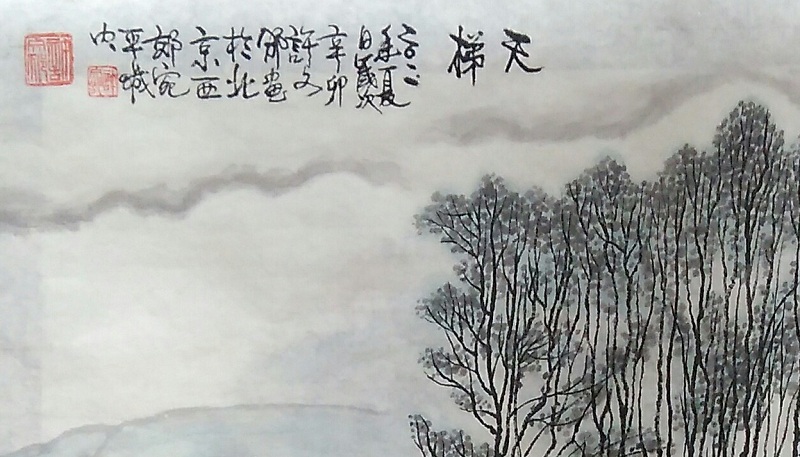 天梯
二〇一一年夏
日歲次
辛卯
許文
畫
於北
京西
郊宛
平城
內